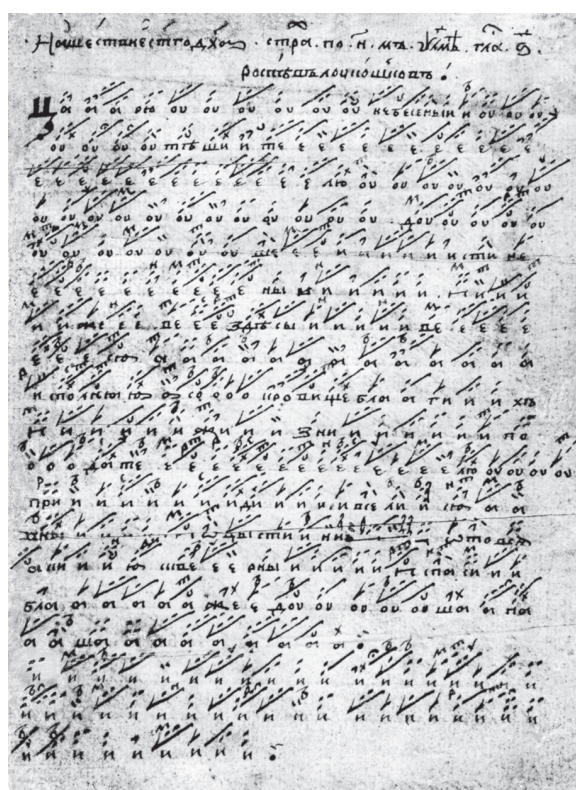 На сшествие стго дха . стра . по . н . мъ . ѱлмъ . гла . ѕ .
роспѣвъ лоукошковъ .
Ца а а рю оу оу оу оу оу оу небесныи и оу оу оу
оу оу оу тѣши и те е е е е е е е е е
е е е е е е е е е е е лю оу оу оу оу оу оу
оу оу оу оу оу оу оу оу оу оу оу доу оу оу оу оу
оу оу оу оу оу оу оу ше е е и и и и и исти не
е е е е е е е е е ны ы и и и и . И и и
и и же е е ве е е здѣ сы и и и и и ве е е е
е е е сю а а а а а а а а а а а
исполняю ю а со о о о кровище бла а ги и и хъ
И и и и и жи и и и зни и и и и и и по
о о о дате е е е е е е е е е е лю оу оу оу оу
при и и и и и иди и и и и и все ли и и ся а а
ны и и и ѡчисти и ны ѿ вся
а ки и и ю скве е е рны и и и и И спаси и и и
бла а а а а а же е е доу оу оу оу оу оу ша а на
а а ша а а а а а а а а а а .
и и и и и и и и и и и и и и и и
и и и и и и и и и и и и и и и и
и и и и и и и и .